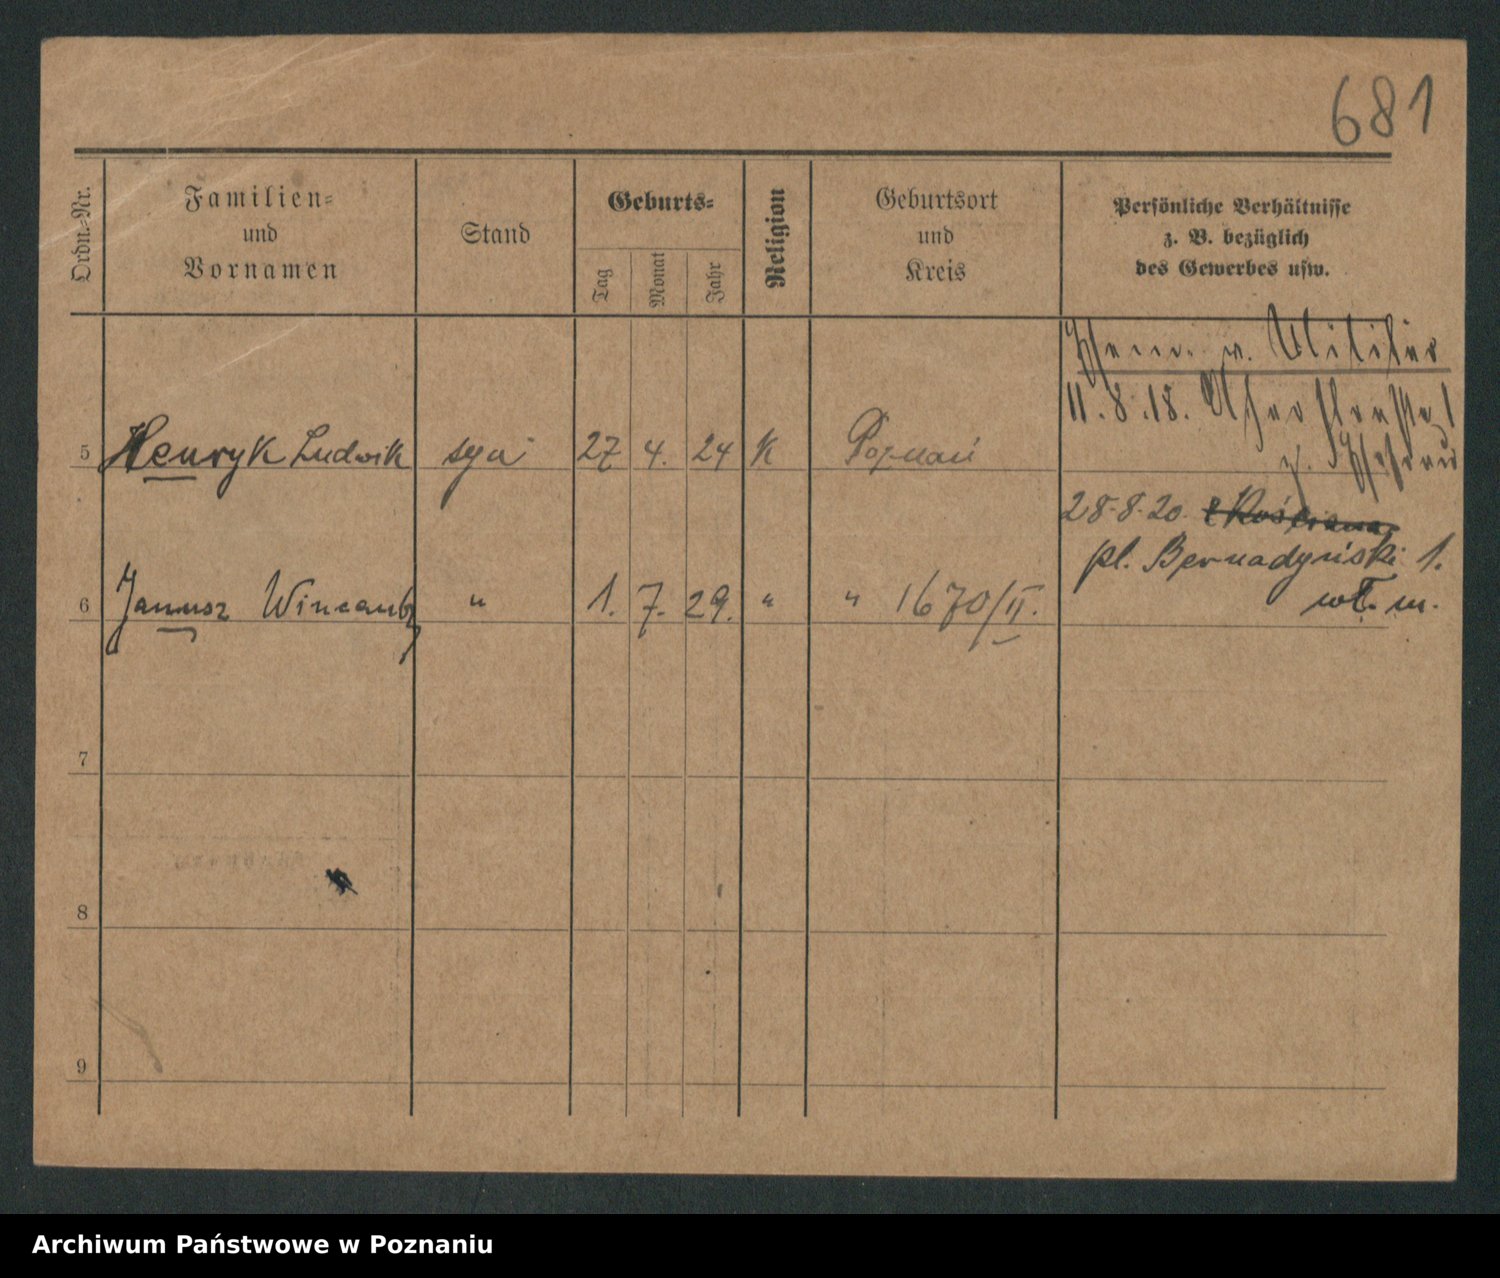 681
Ordn.-Nr.
Familien-
und
Vornamen
Stand
Geburts-
Tag
Monat
Jahr
Religion
Geburtsort
und
Kreis
Persönliche Verhältnisse
z. B. bezüglich
des Gewerbes usw.
v. Militär
11.8.18.
5 Henryk Ludwik syn 27 4. 24 K Poznań
28.8.20.
pl. Bernadyński 1.
wł. m.
6 Janusz Wincenty " 1. 7. 29. " " 1670/II.
7
8
9
Archiwum Państwowe w Poznaniu